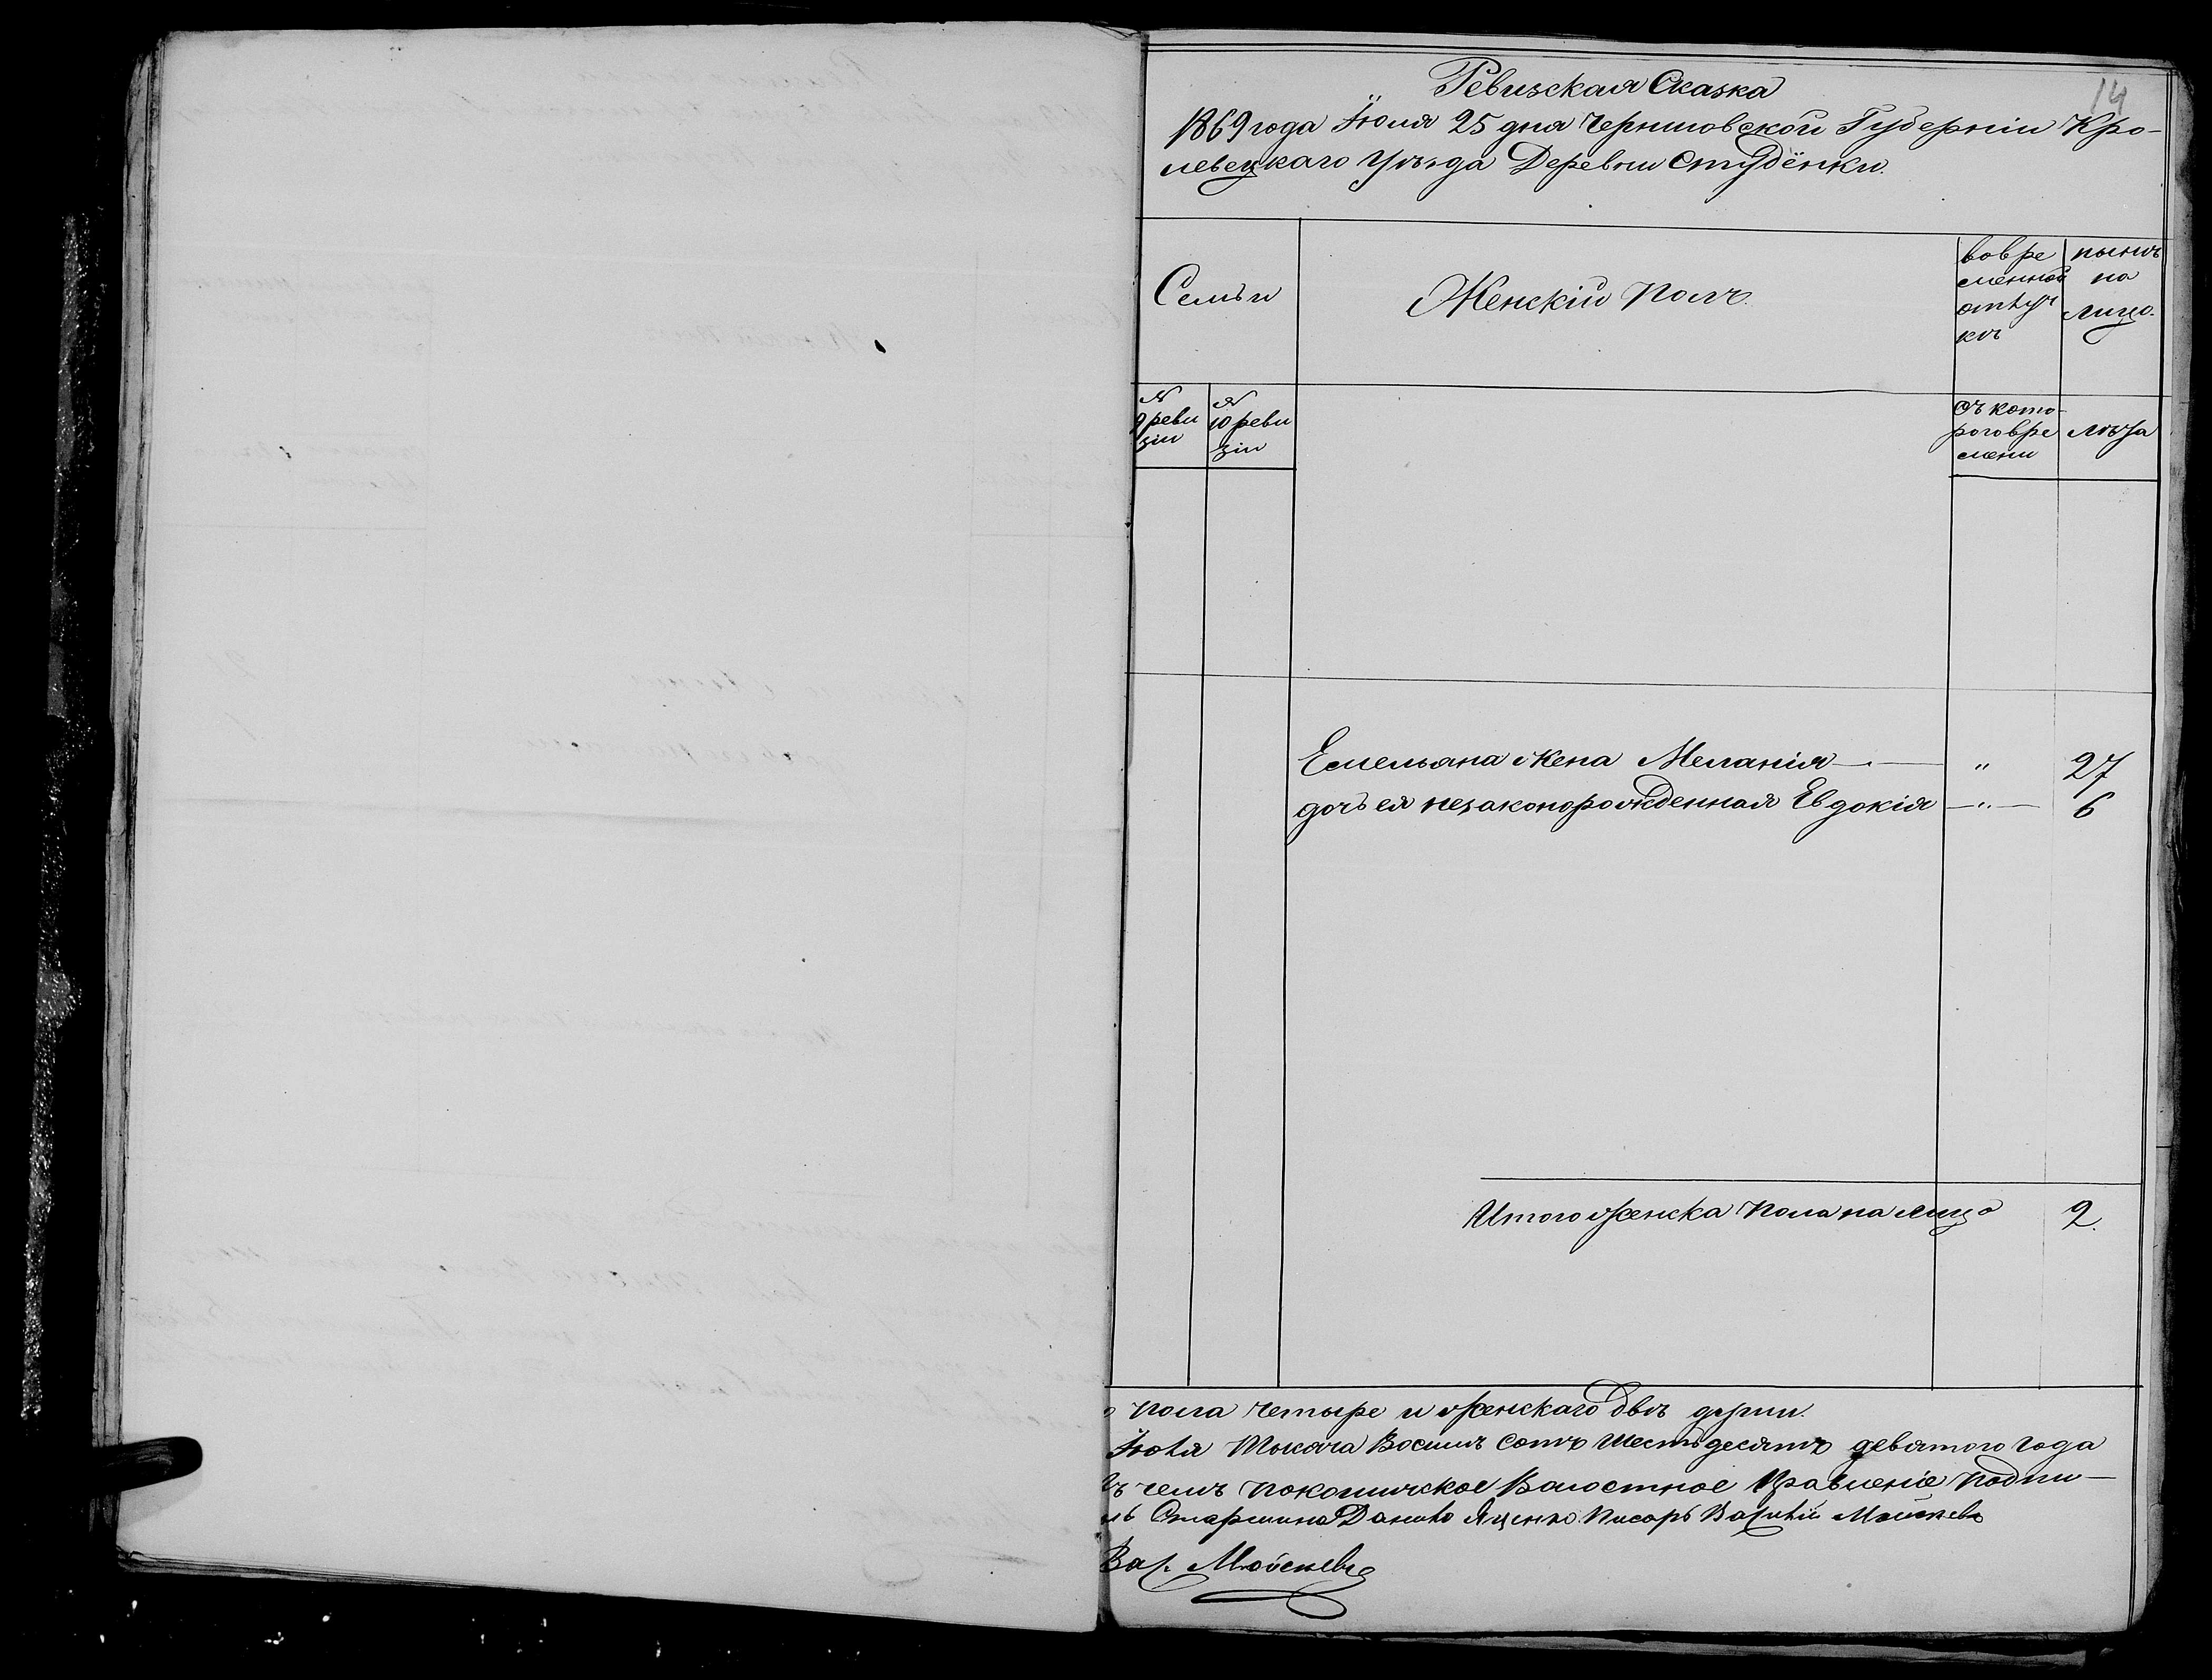 14
Ревизская Сказка
1869 года Июля 25 дня Черниговской Губерніи Кро-
левецкаго Уѣзда Деревни Студёнки.
Семьи
Женскій Полъ.
во вре
менной
отлуч
кѣ
нынѣ
на
лицо.
№
9 реви
зіи
№
10 реви
зіи
съ кото-
рого вре
мени
Лѣта
Емельяна жена Меланія — " 27
дочь ея незаконорожденная Евдокія — " — 6
Итого женска пола на лицо 2.
пола четыре и женскаго двѣ души.
Іюля Тысяча Восимъ сотъ Шестьдесятъ девятого года
чемъ Покошичское Волостное Правленіе Подпи-
Старшина Данило Яценко Писарь Василій Мойсеев
Вас. Мойсеев